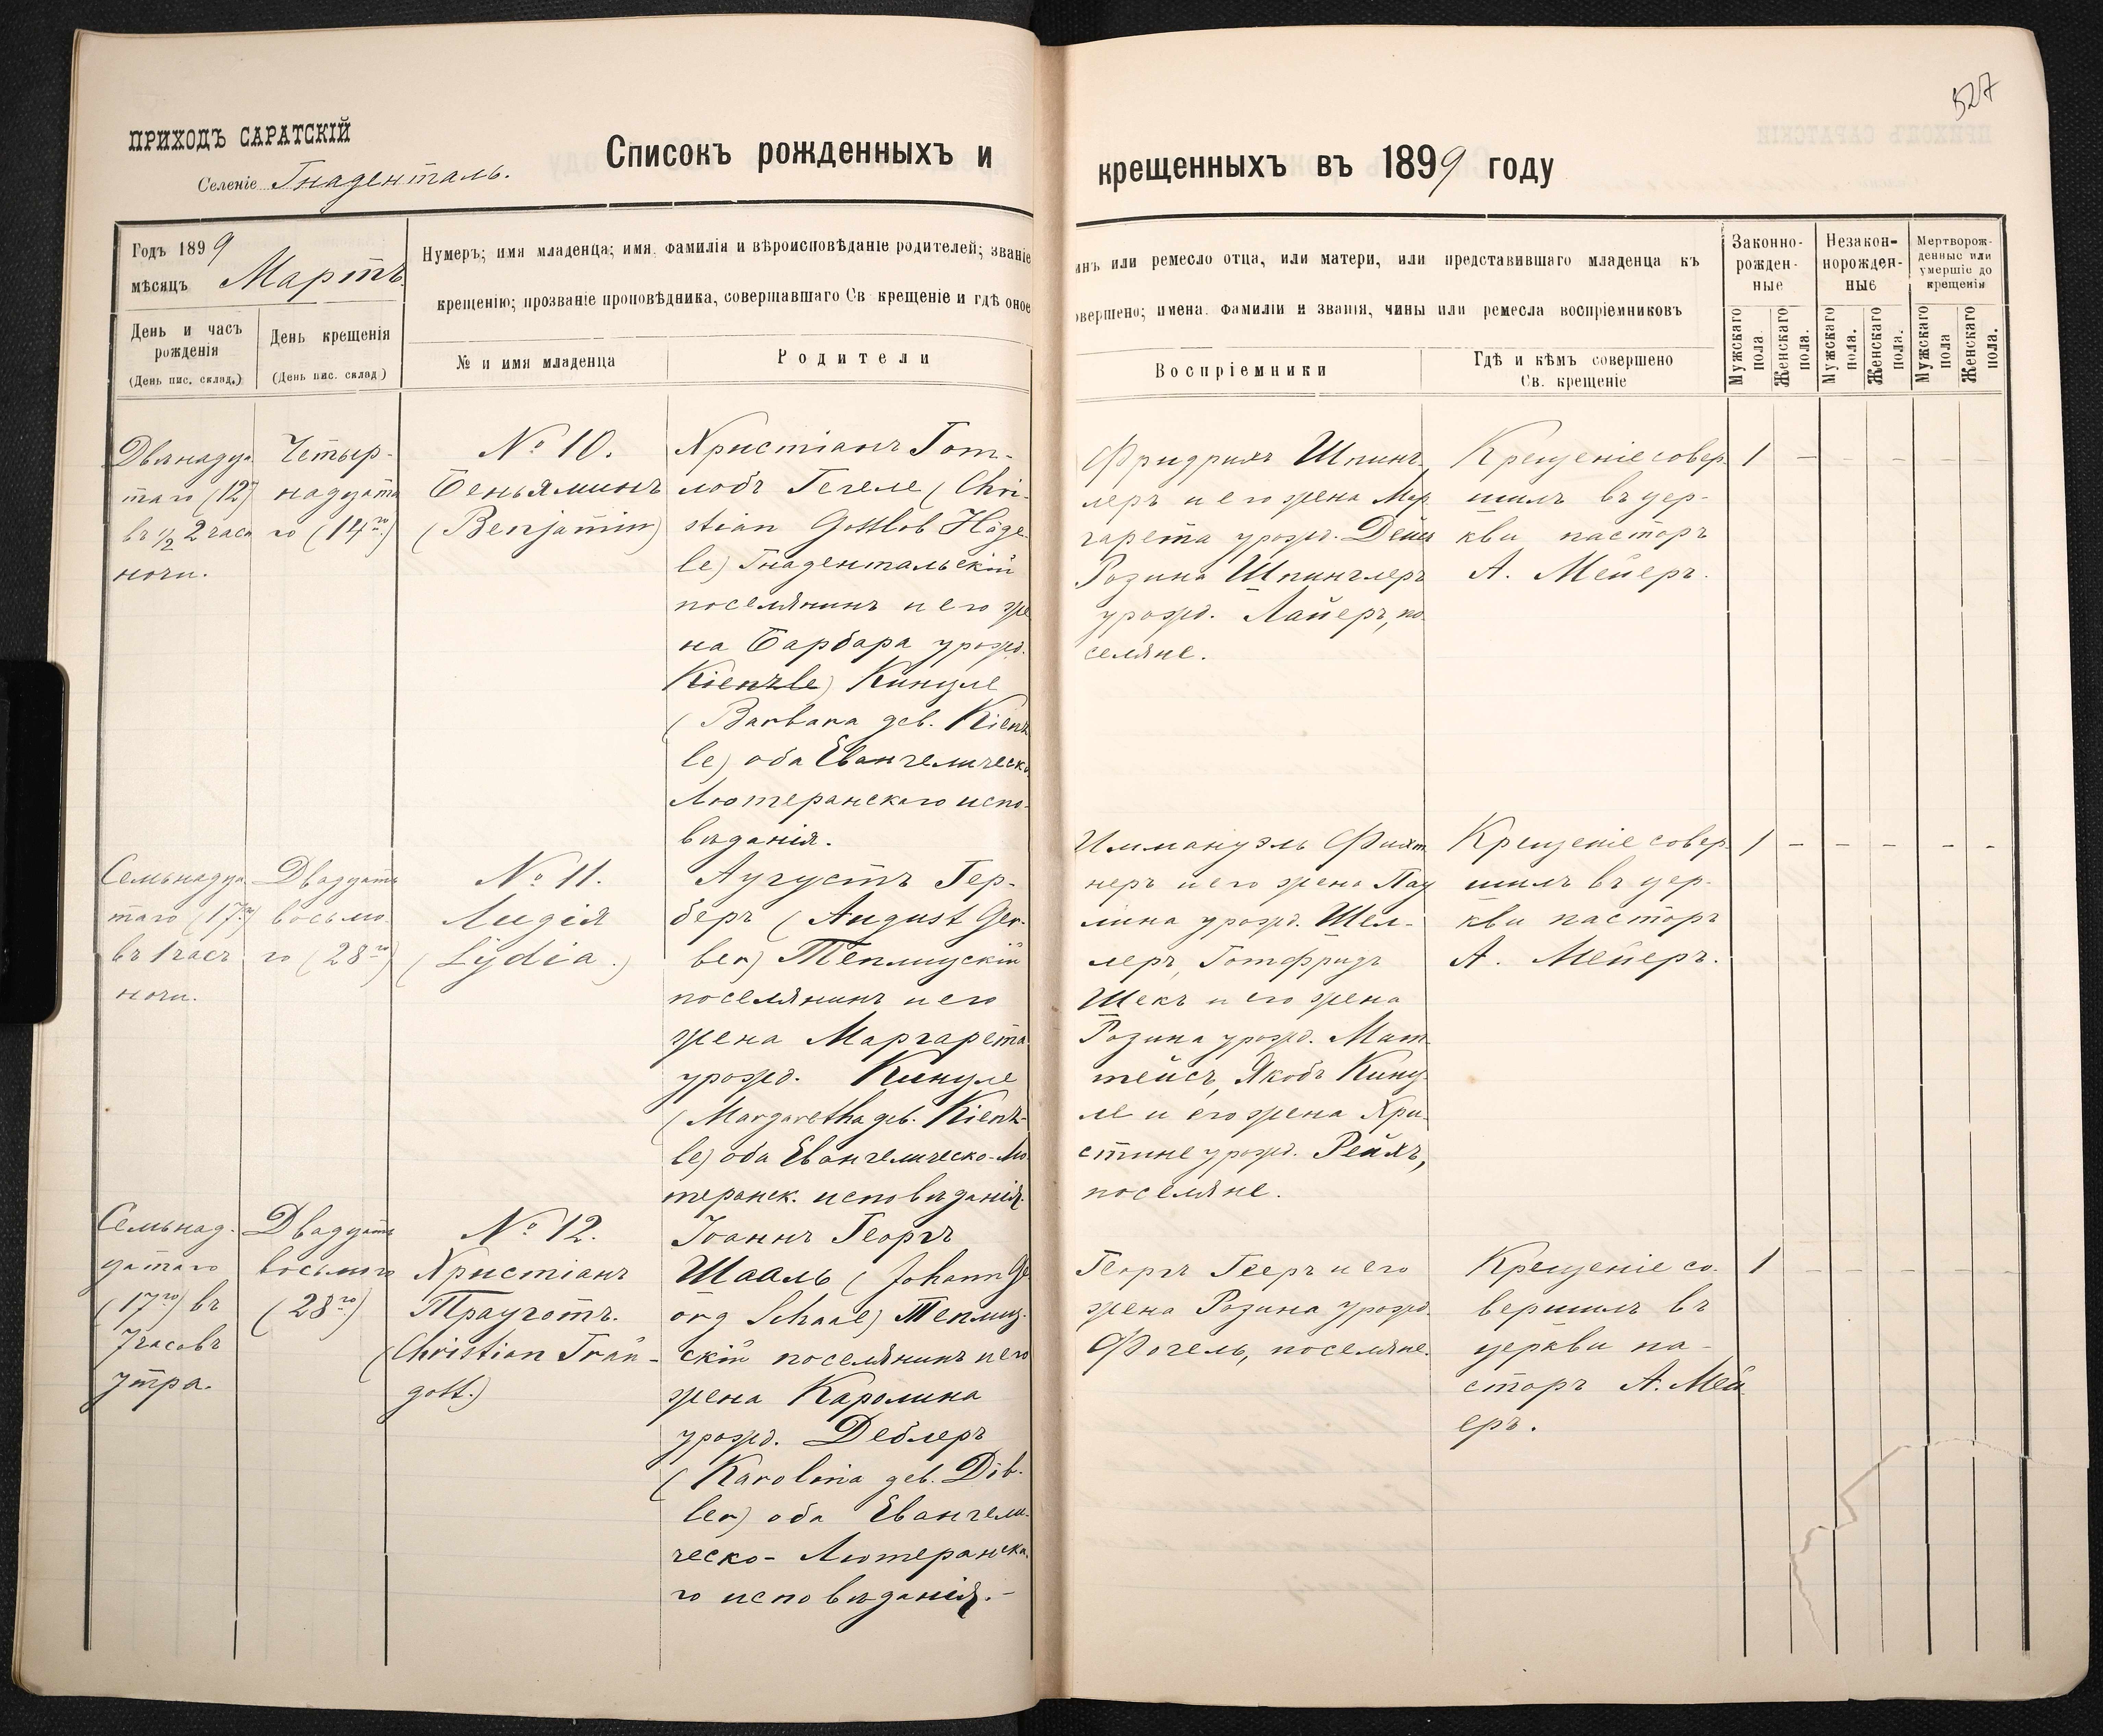 527
ПРИХОДЪ САРАТСКІЙ
Селеніе Гнаденталь.
Списокъ рожденныхъ и крещенныхъ въ 1899 году
Годъ 1899
мѣсяцъ Мартъ
День и часъ рожденія
(День пис. склад.)
День крещенія
(День пис. склад)
Нумеръ; имя младенца; имя. фамилія и вѣроисповѣданіе родителей; званіе
крещенію; прозваніе проповѣдника, совершавшаго Св крещеніе и гдѣ оное
№ и имя младенца
Родители
инъ или ремесло отца, или матери, или представившаго младенца къ
овершено; имена. фамиліи и званія, чины или ремесла воспріемниковъ
Воспріемники
Гдѣ и кѣмъ совершено
Св. крещеніе
Законно-
рожден-
ные
Незакон-
норожден-
ные
Мертворож-
денные или
умершіе до
крещенія
Мужскаго пола
Женскаго пола.
Мужскаго пола.
Женскаго пола.
Мужскаго пола
Женскаго пола.
Двѣнадца
таго (12)
въ ½ 2 часа
ночи.
Четыр-
надцата
го (14го)
№ 10.
Беньяминъ
(Benjamin)
Христіанъ Гот-
лобъ Гегеле (Chri-
stian Gottlob Häge-
le) Гнадентальскій
поселянинъ и его же
на Барбара урожд.
Kienzle) Кинцле
(Barbara geb. Kienz
le) оба Евангелическо
Лютеранскаго испо-
вѣданія.
Фридрихъ Шпинг-
леръ и его жена Мар
гарета урожд.
Розина Шпинглеръ
урожд. Лайеръ, по
селяне.
Крещеніе совер-
шилъ въ цер-
кви пасторъ
А. Мейеръ.
1 - - - - -
Семьнадца
таго (17го)
въ 1 часъ
ночи.
Двадцать
восьмо
го (28го)
№ 11.
Лидія
(Lydia.)
Аугустъ Гер-
беръ (August Ger-
ber) Теплицскій
поселянинъ и его
жена Маргарета
урожд. Кинцле
(Margaretha geb. Kienz-
le) оба Евангелическо-Лю
теранск. исповѣданія.
Иммануэль Фихт
неръ и его жена Пау
лина урожд. Шел-
леръ, Готфридъ
Шекъ и его жена
Розина урожд. Мат-
тейсъ, Якобъ Кинц
ле и его жена Хри-
стине урожд. Рейхъ,
поселяне.
Крещеніе совер-
шилъ въ цер-
кви пасторъ
А. Мейеръ.
1 - - - - -
Семьнад-
цатаго
(17го) въ
7 часовъ
утра.
Двадцать
восьмого
(28го)
№ 12.
Христіанъ
Трауготъ.
(Christian Trau-
gott.)
Іоаннъ Георгъ
Шааль (Johann Ge
org Schaal) Теплиц-
скій поселянинъ и его
жена Каролина
урожд. Деблеръ
(Karolina geb. Döb-
ler) оба Евангели-
ческо- Лютеранска-
го исповѣданія. -
Георгъ Гееръ и его
жена Розина урожд.
Фогель, поселяне.
Крещеніе со-
вершилъ въ
церкви па-
сторъ А. Мей
еръ.
1 - - - - -